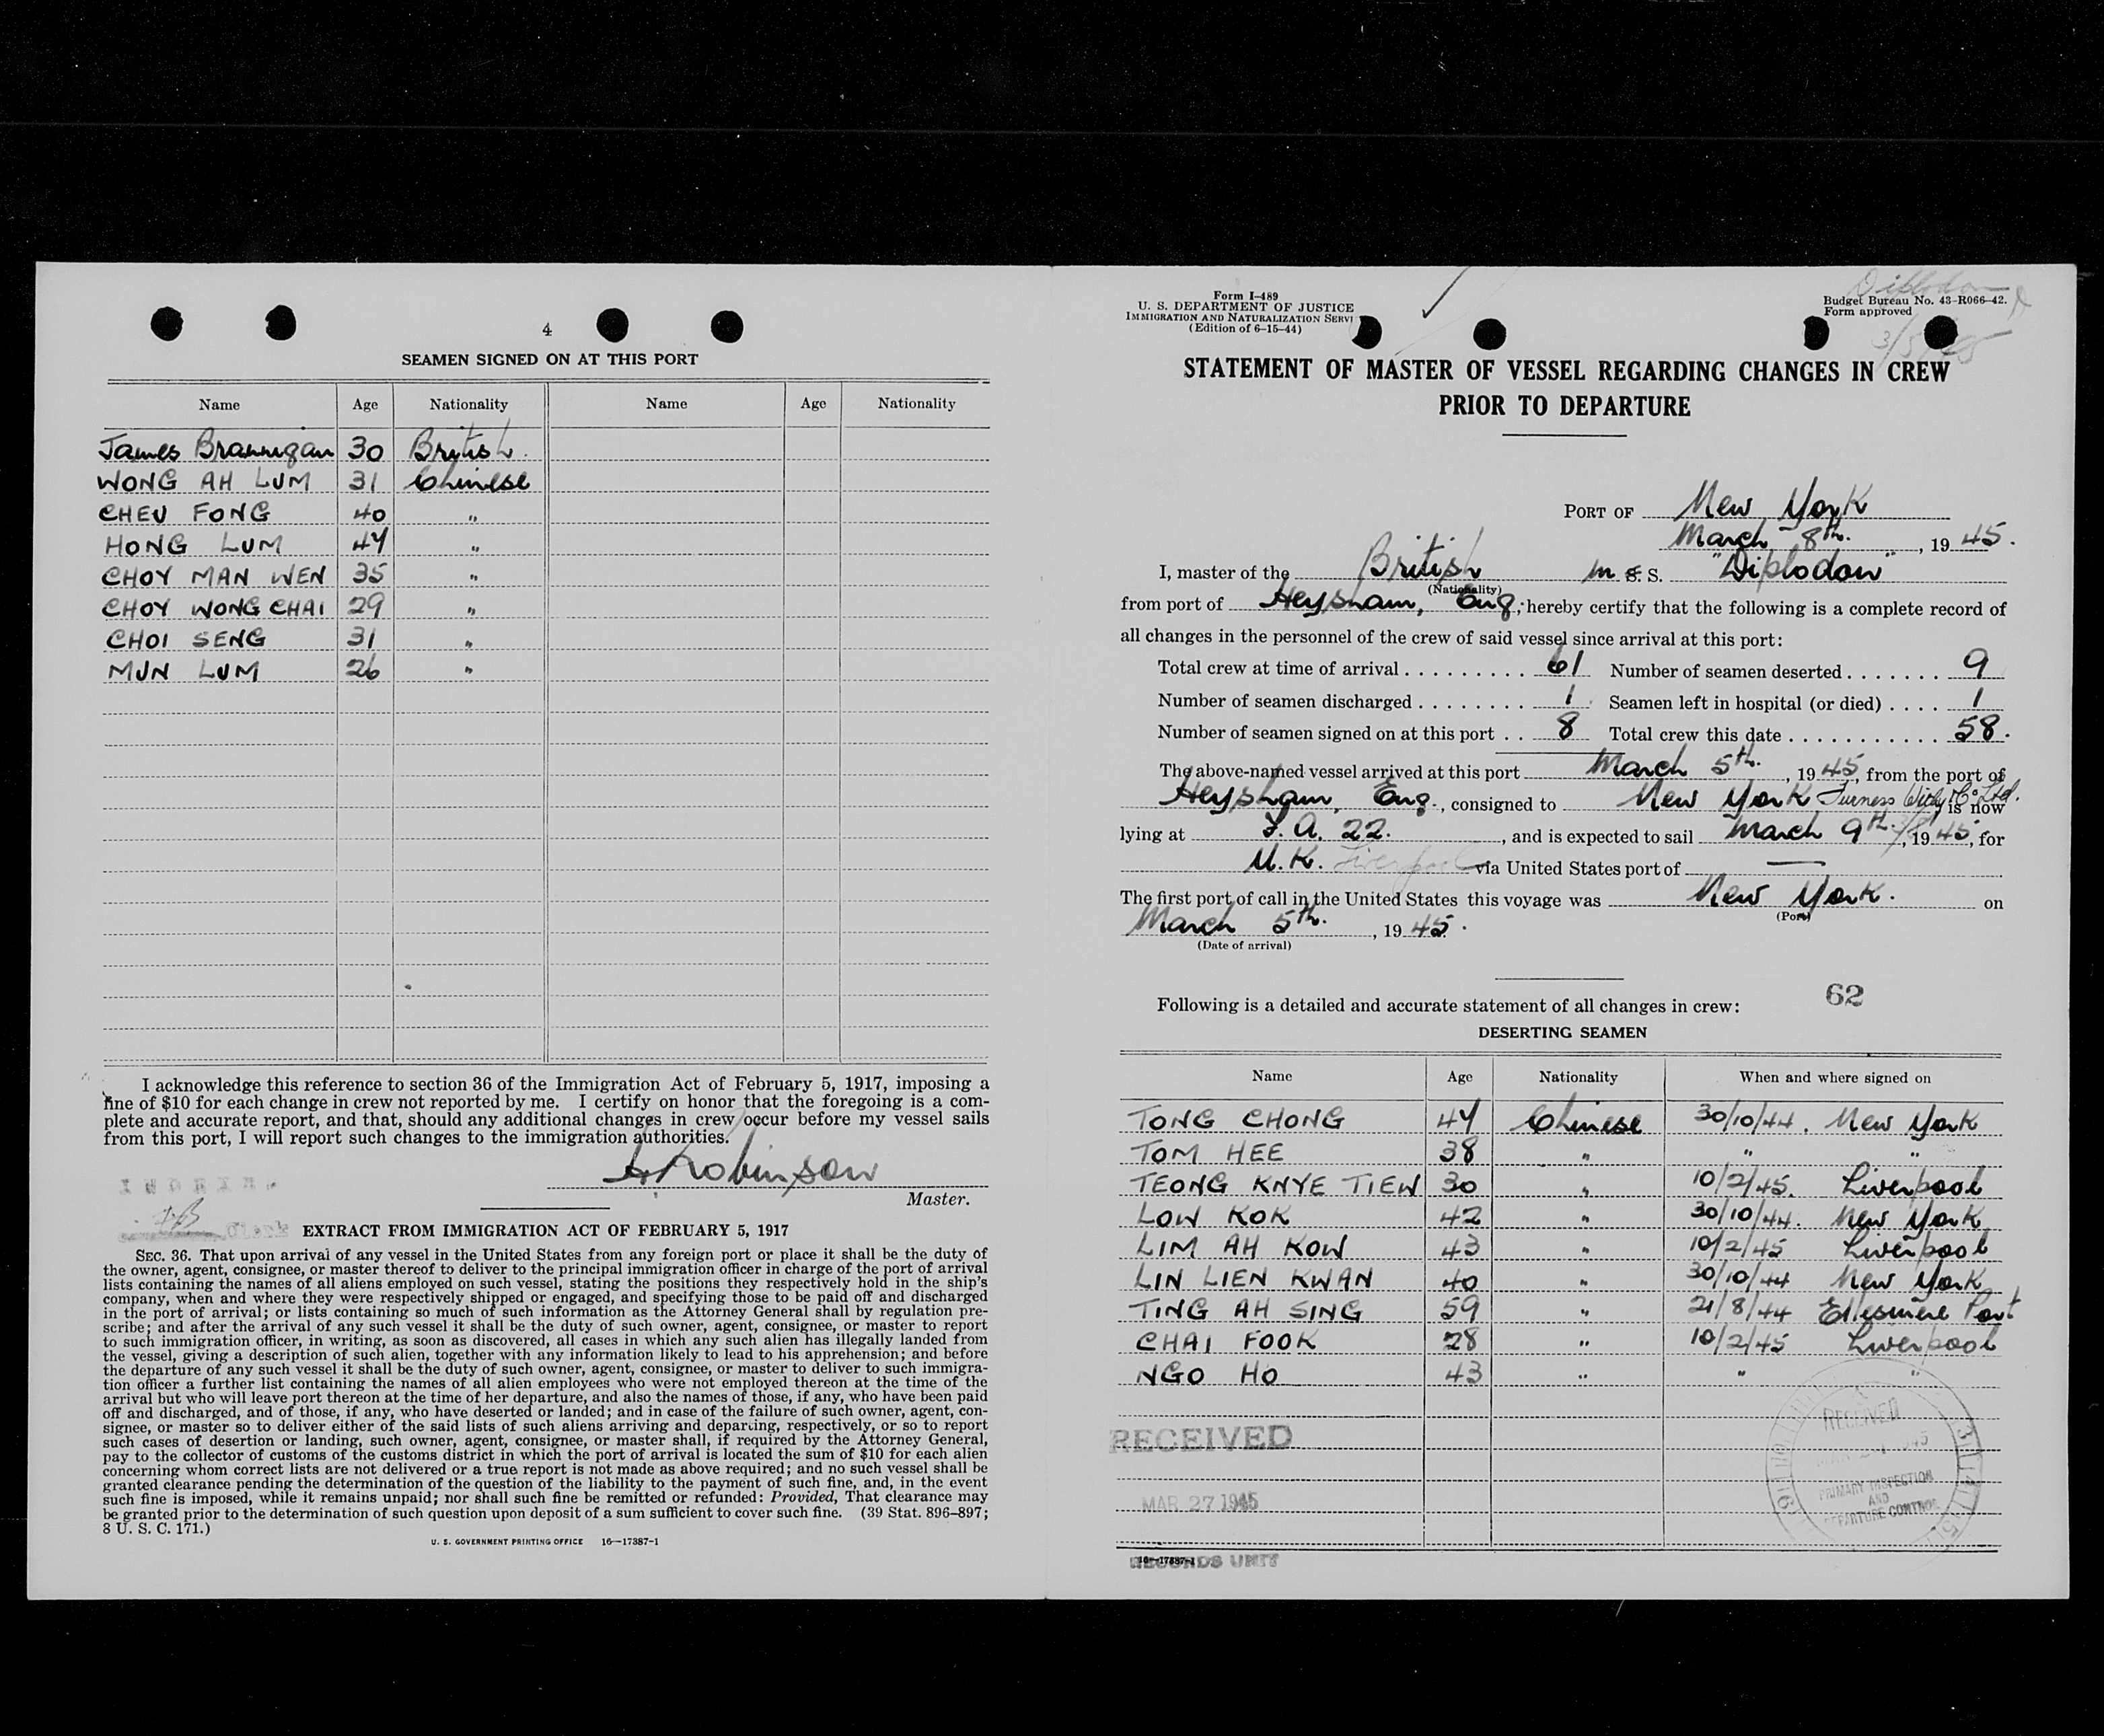 4
SEAMEN SIGNED ON AT THIS PORT
Name Age Nationality Name Age Nationality
James Brannigan 30 British
WONG AH LUM 31 Chinese
CHEU FONG 40 "
HONG LUM 44 "
CHOY MAN WEN 35 "
CHOY WONG CHAI 29 "
CHOI SENG 31 "
MUN LUM 26 "
I acknowledge this reference to section 36 of the Immigration Act of February 5, 1917, imposing a
fine of $10 for each change in crew not reported by me. I certify on honor that the foregoing is a com-
plete and accurate report, and that, should any additional changes in crew occur before my vessel sails
from this port, I will report such changes to the immigration authorities.
Robinson
Master.
EXTRACT FROM IMMIGRATION ACT OF FEBRUARY 5, 1917
SEC. 36. That upon arrival of any vessel in the United States from any foreign port or place it shall be the duty of
the owner, agent, consignee, or master thereof to deliver to the principal immigration officer in charge of the port of arrival
lists containing the names of all aliens employed on such vessel, stating the positions they respectively hold in the ship's
company, when and where they were respectively shipped or engaged, and specifying those to be paid off and discharged
in the port of arrival; or lists containing so much of such information as the Attorney General shall by regulation pre-
scribe; and after the arrival of any such vessel it shall be the duty of such owner, agent, consignee, or master to report
to such immigration officer, in writing, as soon as discovered, all cases in which any such alien has illegally landed from
the vessel, giving a description of such alien, together with any information likely to lead to his apprehension; and before
the departure of any such vessel it shall be the duty of such owner, agent, consignee, or master to deliver to such immigra-
tion officer a further list containing the names of all alien employees who were not employed thereon at the time of the
arrival but who will leave port thereon at the time of her departure, and also the names of those, if any, who have been paid
off and discharged, and of those, if any, who have deserted or landed; and in case of the failure of such owner, agent, con-
signee, or master so to deliver either of the said lists of such aliens arriving and departing, respectively, or so to report
such cases of desertion or landing, such owner, agent, consignee, or master shall, if required by the Attorney General,
pay to the collector of customs of the customs district in which the port of arrival is located the sum of $10 for each alien
concerning whom correct lists are not delivered or a true report is not made as above required; and no such vessel shall be
granted clearance pending the determination of the question of the liability to the payment of such fine, and, in the event
such fine is imposed, while it remains unpaid; nor shall such fine be remitted or refunded: Provided, That clearance may
be granted prior to the determination of such question upon deposit of a sum sufficient to cover such fine. (39 Stat. 896-897;
8 U. S. C. 171.)
U. S. GOVERNMENT PRINTING OFFICE 16—17387-1
Form I-489
U. S. DEPARTMENT OF JUSTICE
IMMIGRATION AND NATURALIZATION SERVI
(Edition of 6-15-44)
Diplodon
Budget Bureau No. 43-R066-42.
Form approved
3/5/45
STATEMENT OF MASTER OF VESSEL REGARDING CHANGES IN CREW
PRIOR TO DEPARTURE
PORT OF New York
March 8th. , 19 45.
I, master of the British m S. S. "Diplodon"
(Nationality)
from port of Heysham, Eng, hereby certify that the following is a complete record of
all changes in the personnel of the crew of said vessel since arrival at this port:
Total crew at time of arrival . . . . . . . . . 61 Number of seamen deserted . . . . . . . 9
Number of seamen discharged . . . . . . . . 1 Seamen left in hospital (or died) . . . . 1
Number of seamen signed on at this port . . 8 Total crew this date . . . . . . . . . . . 58.
The above-named vessel arrived at this port March 5th. , 19 45, from the port of
Heysham, Eng., consigned to New York Furness Withy & Co Ltd. is now
lying at F. A. 22. , and is expected to sail March 9th. , 19 45, for
U.K. Liverpool via United States port of —
The first port of call in the United States this voyage was New York. on
(Port)
March 5th. , 19 45.
(Date of arrival)
62
Following is a detailed and accurate statement of all changes in crew:
DESERTING SEAMEN
Name Age Nationality When and where signed on
TONG CHONG 44 Chinese 30/10/44. New York
TOM HEE 38 " " "
TEONG KNYE TIEW 30 " 10/2/45. Liverpool
LOW KOK 42 " 30/10/44. New York
LIM AH KOW 43 " 10/2/45 Liverpool
LIN LIEN KWAN 40 " 30/10/44 New York
TING AH SING 59 " 21/8/44 Ellesmere Port
CHAI FOOK 28 " 10/2/45 Liverpool
NGO HO 43 " " "
RECEIVED
MAR 27 1945
RECORDS UNIT
16—17387-1
RECEIVED
PRIMARY INSPECTION
AND
DEPARTURE CONTROL